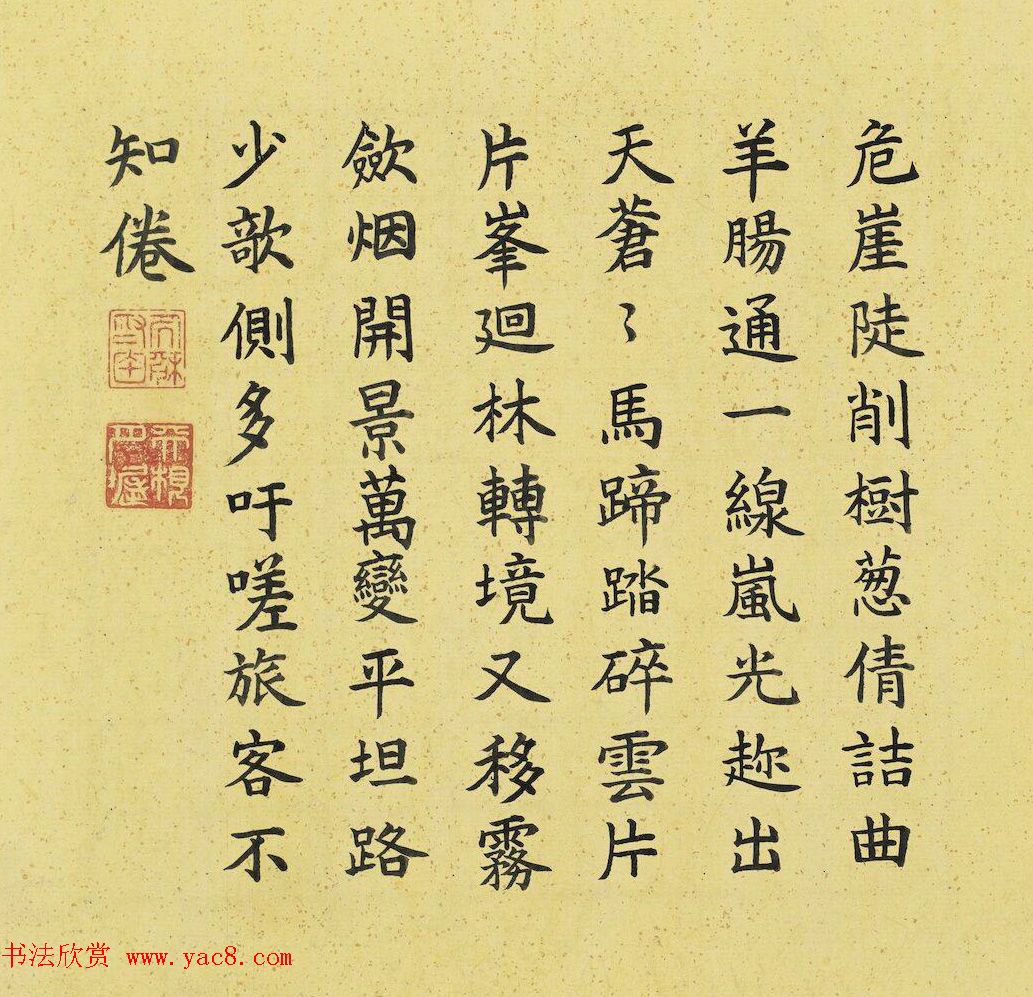 危崖陡削樹葱倩詰曲
羊腸通一線嵐光趂出
天蒼〻馬蹄踏碎雲片
片峯廻林轉境又移霧
歛烟開景萬變平坦路
少欹側多吁嗟旅客不
知倦
书法欣赏 www.yac8.com